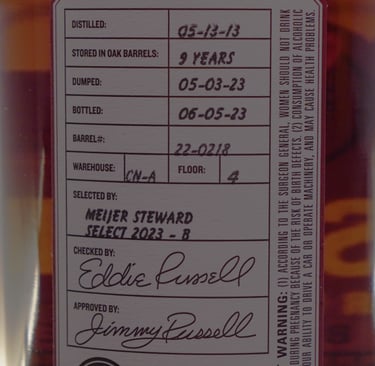 DISTILLED: 05-13-13
STORED IN OAK BARRELS: 9 YEARS
DUMPED: 05-03-23
BOTTLED: 06-05-23
BARREL#: 22-0218
WAREHOUSE: CN-A FLOOR: 4
SELECTED BY:
MEIJER STEWARD
SELECT 2023 - B
CHECKED BY:
Eddie Russell
APPROVED BY:
Jimmy Russell
WARNING: (1) ACCORDING TO THE SURGEON GENERAL, WOMEN SHOULD NOT DRINK
DURING PREGNANCY BECAUSE OF THE RISK OF BIRTH DEFECTS. (2) CONSUMPTION OF ALCOHOLIC
OUR ABILITY TO DRIVE A CAR OR OPERATE MACHINERY, AND MAY CAUSE HEALTH PROBLEMS.